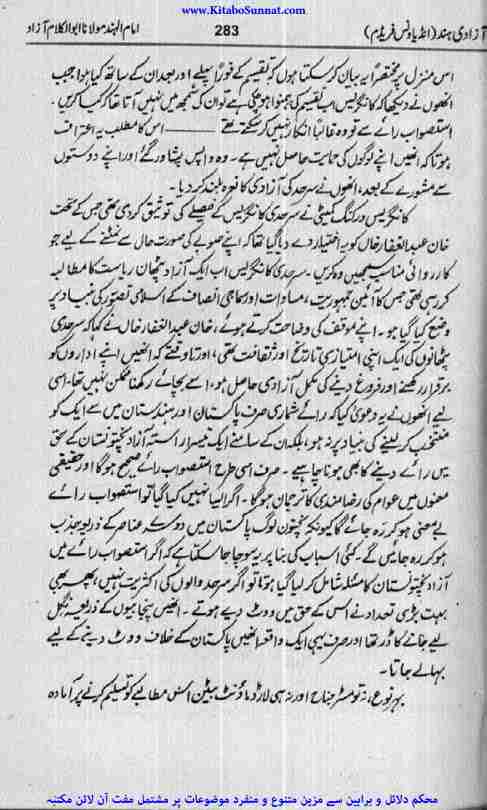 www.KitaboSunnat.com
آزادی ہند (انڈیا ونس فریڈم) 283 امام الہند مولانا ابوالکلام آزاد
اس منزل پر مختصراً یہ بیان کرسکتا ہوں کہ تقسیم کے فوراً پہلے اور بعد ان کے ساتھ کیا ہوا، جب
انھوں نے دیکھا کہ کانگریس اب تقسیم کی ہمنوا ہو چکی ہے تو ان کی سمجھ میں نہیں آتا تھا کہ کیا کریں۔
استصواب رائے سے تو وہ غالباً انکار نہیں کرسکتے تھے ——— اس کا مطلب یہ اعتراف
ہوتا کہ انھیں اپنے لوگوں کی حمایت حاصل نہیں ہے۔ وہ واپس پشاور گئے اور اپنے دوستوں
سے مشورے کے بعد، انھوں نے سرحد کی آزادی کا نعرہ بلند کردیا۔
کانگریس ورکنگ کمیٹی نے سرحدی کانگریس کے فیصلے کی توثیق کردی تھی جس کے تحت
خان عبدالغفار خاں کو یہ اختیار دے دیا گیا تھا کہ اپنے صوبے کی صورت حال سے نمٹنے کے لیے جو
کارروائی مناسب سمجھیں وہ کریں۔ سرحدی کانگریس اب ایک آزاد پٹھان ریاست کا مطالبہ
کررہی تھی جس کا آئین جمہوریت، مساوات اور سماجی انصاف کے اسلامی تصور کی بنیاد پر
وضع کیا گیا ہو۔ اپنے موقف کی وضاحت کرتے ہوئے، خان عبدالغفار خاں نے کہا کہ سرحدی
پٹھانوں کی ایک اپنی امتیازی تاریخ اور ثقافت تھی، اور تاوقتیکہ انھیں اپنے اداروں کو
برقرار رکھنے اور فروغ دینے کی مکمل آزادی حاصل ہو، اسے بچائے رکھنا ممکن نہیں تھا۔ اسی
لیے انھوں نے یہ دعویٰ کیا کہ رائے شماری صرف پاکستان اور ہندستان میں سے ایک کو
منتخب کر لینے کی بنیاد پر نہ ہو، بلکہ ان کے سامنے ایک تیسرا راستہ آزاد پختونستان کے حق
میں رائے دینے کا بھی ہونا چاہیے۔ صرف اسی طرح استصواب رائے صحیح ہوگا اور حقیقی
معنوں میں عوام کی رضامندی کا ترجمان ہوگا۔ اگر ایسا نہیں کیا گیا تو استصواب رائے
بے معنی ہو کر رہ جائے گا کیونکہ پختون لوگ پاکستان میں دوسرے عناصر کے ذریعہ جذب
ہو کر رہ جائیں گے۔ کئی اسباب کی بنا پر یہ سوچا جاسکتا ہے کہ اگر استصواب رائے میں
آزاد پختونستان کا مسئلہ شامل کر لیا گیا ہوتا تو اگر سرحد والوں کی اکثریت نہیں، پھر بھی
بہت بڑی تعداد نے اس کے حق میں ووٹ دیے ہوتے۔ انھیں پنجابیوں کے ذریعہ نگل
لیے جانے کا ڈر تھا اور صرف یہی ایک واقعہ انھیں پاکستان کے خلاف ووٹ دینے کے لیے
بہالے جاتا۔
بہر نوع، نہ تو مسٹر جناح اور نہ ہی لارڈ ماؤنٹ بیٹن اس مطالبے کو تسلیم کرنے پر آمادہ
محکم دلائل و براہین سے مزین متنوع و منفرد موضوعات پر مشتمل مفت آن لائن مکتبہ